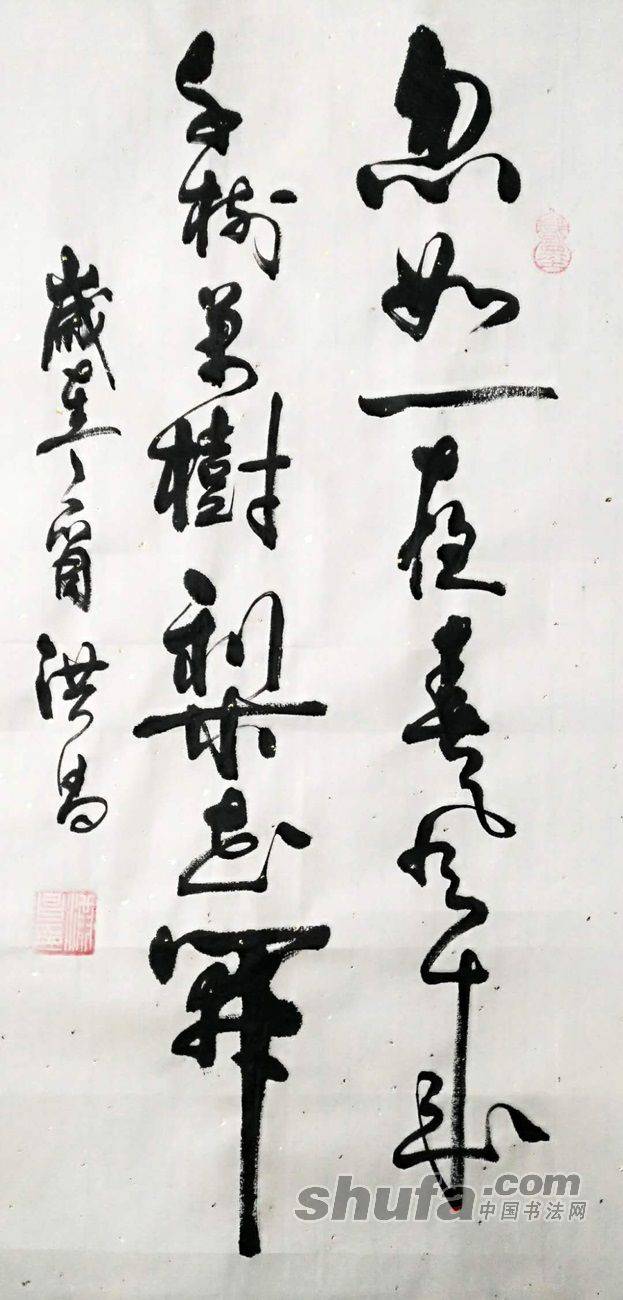 忽如一夜春風來
千樹萬樹梨花開
歲在丁酉洪昌
shufa.com
中国书法网